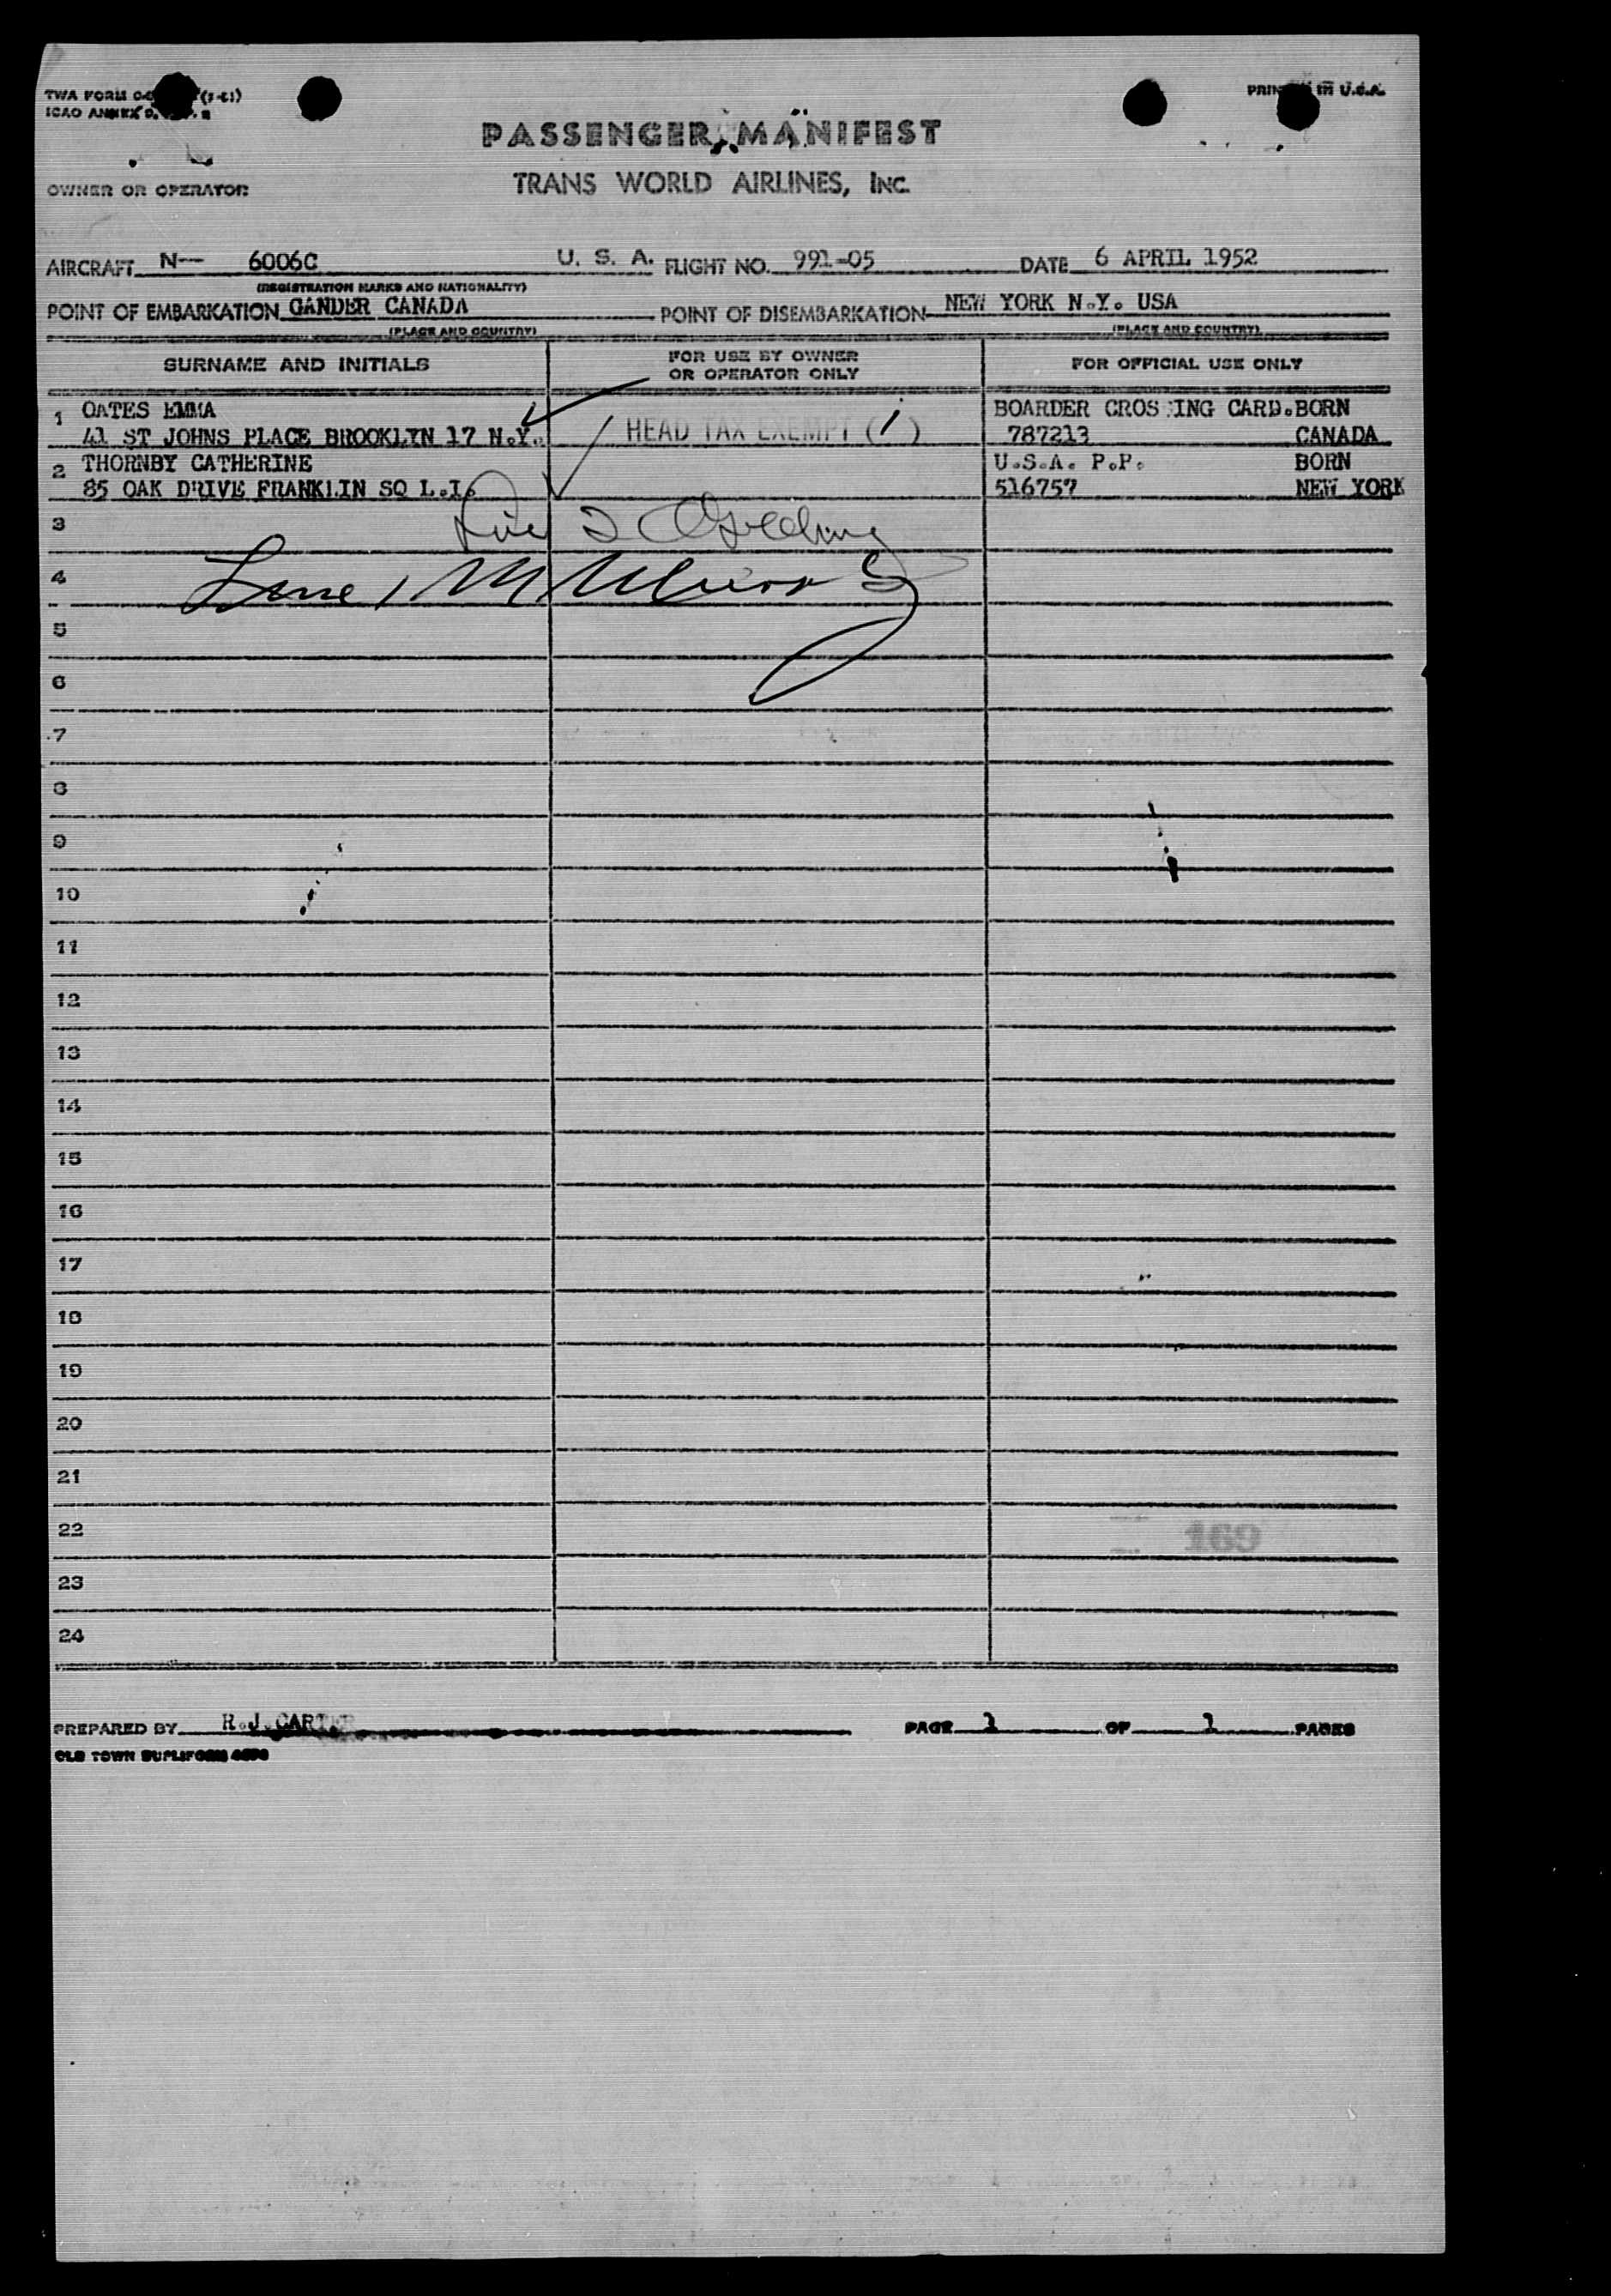 TWA FORM
ICAO ANNEX 9,
PRINTED IN U.S.A.
PASSENGER MANIFEST
OWNER OR OPERATOR
TRANS WORLD AIRLINES, INC.
AIRCRAFT N-- 6006C U. S. A. FLIGHT NO. 991-05 DATE 6 APRIL 1952
(REGISTRATION MARKS AND NATIONALITY)
POINT OF EMBARKATION GANDER CANADA POINT OF DISEMBARKATION NEW YORK N.Y. USA
(PLACE AND COUNTRY) (PLACE AND COUNTRY)
SURNAME AND INITIALS FOR USE BY OWNER OR OPERATOR ONLY FOR OFFICIAL USE ONLY
1 OATES EMMA BOARDER CROS ING CARD. BORN
41 ST JOHNS PLACE BROOKLYN 17 N.Y. HEAD TAX EXEMPT (1) 787213 CANADA
2 THORNBY CATHERINE U.S.A. P.P. BORN
85 OAK DRIVE FRANKLIN SQ L.I. 516757 NEW YORK
3
4
5
6
7
8
9
10
11
12
13
14
15
16
17
18
19
20
21
22 169
23
24
PREPARED BY R.J.CARTER PAGE 1 OF 1 PAGES
OLD TOWN DUPLIFORM